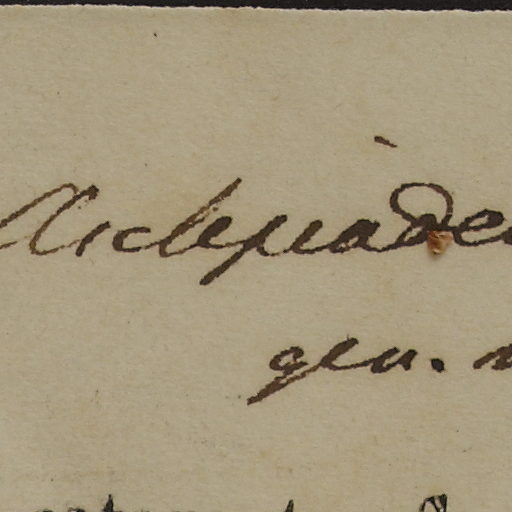 Asclepiadea
gen. n